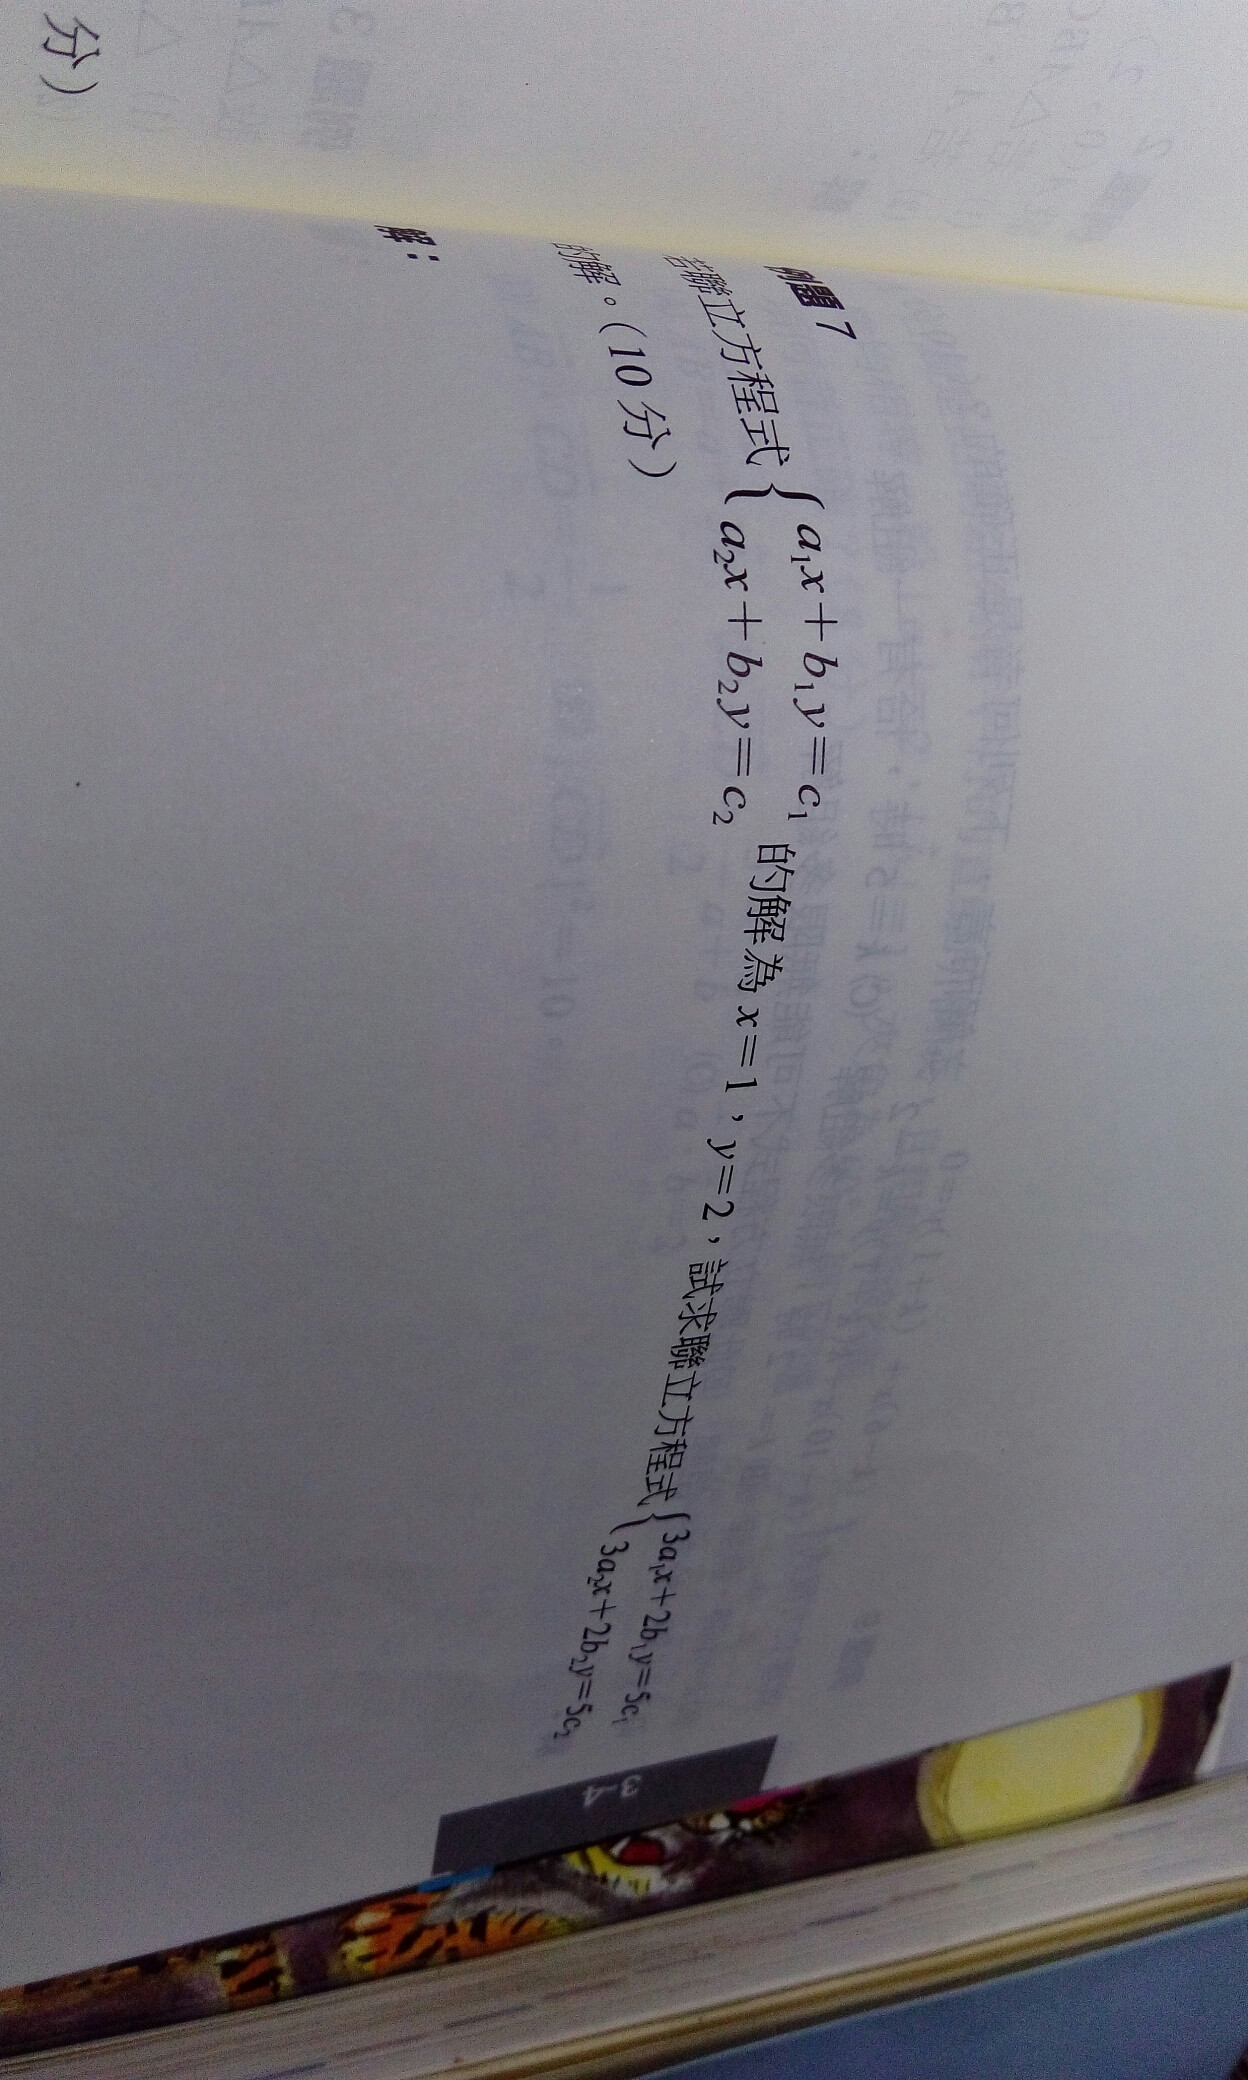 分）
例題 7
若聯立方程式{a₁x＋b₁y＝c₁
a₂x＋b₂y＝c₂ 的解為 x＝1，y＝2，試求聯立方程式{3a₁x＋2b₁y＝5c₁
3a₂x＋2b₂y＝5c₂
的解。（10 分）
解：
3
4